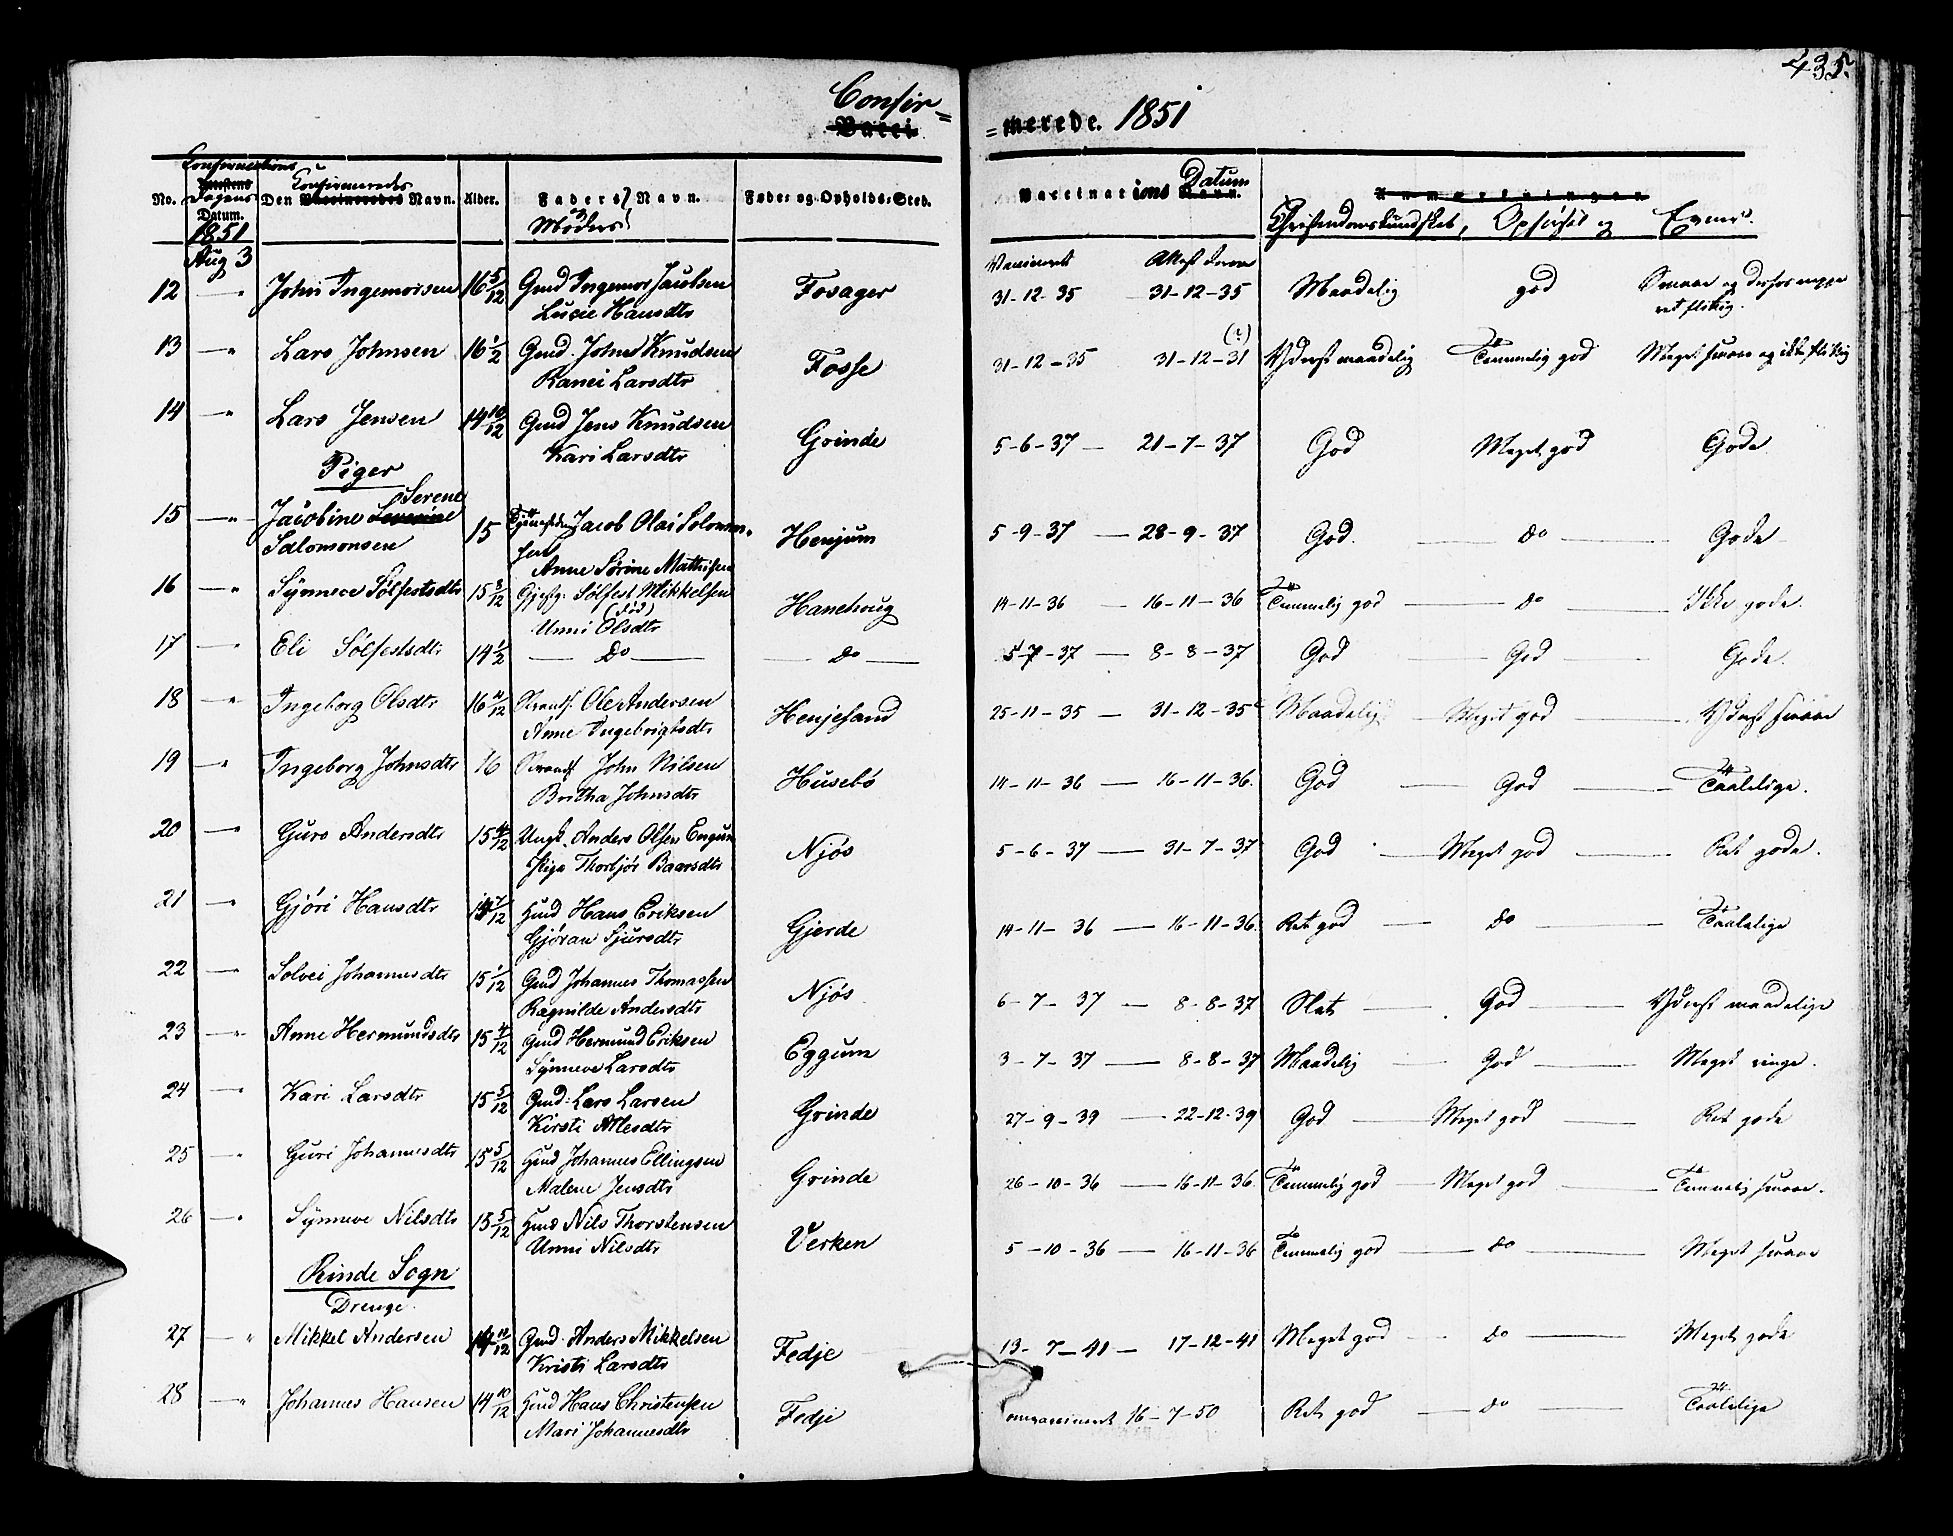 435.
Confir= =merede. 1851
Vacci
No. Confirmations Attestens Dagens Datum. Den Confirmeredes Vaccineredes Navn. Alder. Faders og Moders Navn. Føde- og Opholds-Sted. Vaccinations Datum Navn. Anmærkninger.
Christendomskundskab, Opførsel og Evner.
1851
Aug 3 Vaccineret Attest derom
12 — " John Ingemorsen 16 5/12 Gmd Ingemor Jacobsen Fosager 31-12-35 — 31-12-35 Maadelig god
Lucie Hansdtr
13 — " Lars Johnsen 16 1/2 Gmd. John Knudsen Fosse 31-12-35 31-12-31 (?) Yderst maadelig Temmelig god Meget svage og ikke flittig
Ranei Larsdtr
14 " Lars Jensen 14 10/12 Gmd Jens Knudsen Grinde 5-6-37 — 21-7-37 God Meget god Gode
Kari Larsdtr
Piger
Serene
15 — " Jacobine Severine 15 Jacob Olai Solomon- Henjum 5-9-37 — 28-9-37 God. — Do — Gode
Salomonsen sen
Anne Sørine Mathisen
16 — " Synneve Sølfestsdtr 15 8/12 Sølfest Mikkelsen Hanehoug 14-11-36 — 16-11-36 Temmelig god — Do — Ikke gode.
(død)
Unni Olsdtr
17 — " Eli Sølfestsdtr 14 1/2 — Do — — Do — 5-7-37 — 8-8-37 God — God — Gode.
18 — " Ingeborg Olsdtr 16 Strands. Ole Andersen Henjesand 25-11-35 — 31-12-35 Maadelig — Meget god — Yderst svage
Anne Ingebrigtsdtr
19 — " Ingeborg Johnsdtr 16 Strands John Nilsen Husebö 14-11-36 — 16-11-36. God — God — Taalelige.
Britha Johnsdtr
20 — " Guro Andersdtr 15 4/12 Ungk. Anders Olsen Engum Njøs 5-6-37 — 31-7-37 God — Meget god — Ret gode.
Pige Thorbjør Baarsdtr
21 — " Gjøri Hansdtr 14 7/12 Gmd Hans Eriksen Gjerde 14-11-36 — 16-11-36. Ret god — Do — Taalelige
Gjøran Sjursdtr
22 — " Solvei Johannesdtr 15 1/12 Gmd Johannes Thomassen Njøs 6-7-37 — 8-8-37 Slet — God — Yderst maadelige
Ragnilde Andersdtr
23 — " Anne Hermundsdtr 15 4/12 Gmd Hermund Eriksen Eggum 3-7-37 — 8-8-37 Maadelig — God — Meget ringe.
Synneve Larsdtr
24 — " Kari Larsdtr 15 5/12 Gmd: Lars Larsen Grinde 27-9-39 — 22-12-39 God — Meget god — Ret gode
Kirsti Atlesdtr
25 — " Guri Johannesdtr 15 5/12 Gmd Johannes Ellingsen Grinde 26-10-36 — 16-11-36. Temmelig god — Meget god — Temmelig svage.
Malene Jensdtr
26 — " Synneve Nilsdtr 15 5/12 Gmd Nils Thorstensen Verken 5-10-36 — 16-11-36 Temmelig god — Do — Meget svage
Unni Nilsdtr
Rinde Sogn
Drenge.
27 — " Mikkel Andersen 14 10/12 Gmd. Anders Mikkelsen Fedje 13-7-41 — 17-12-41 Meget god — Do — Meget gode
Kristi Larsdtr
28 — " Johannes Hansen 14 10/12 Gmd Hans Christensen Fedje omvaccineret 16-7-50 Ret god — Do — Taalelige
Mari Johannesdtr